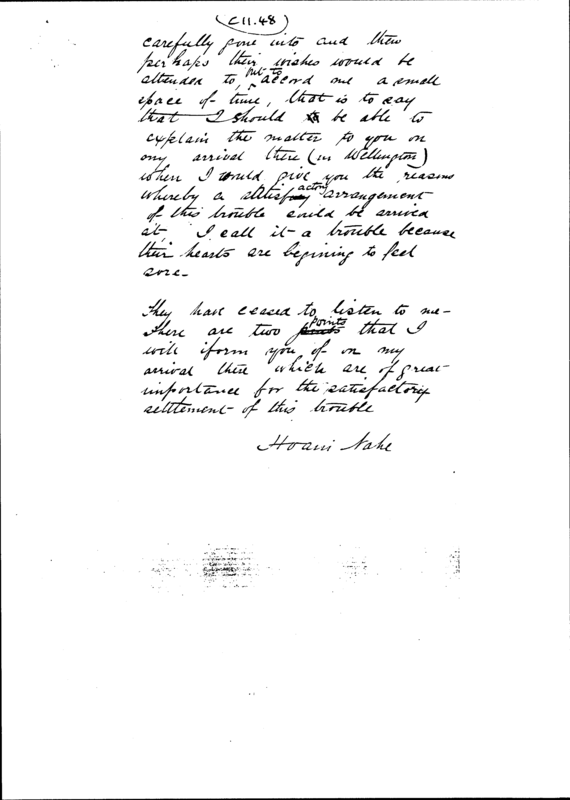 (C11.48)
carefully gone into and then
perhaps their wishes would be
attended to, but to accord me a small
space of time, that is to say
that I should be able to
explain the matter to you on
my arrival there (in Wellington)
when I would give you the reasons
whereby a satisfactory arrangement
of this trouble could be arrived
at, I call it a trouble because
their hearts are begining to feel
sore.
They have ceased to listen to me -
There are two points that I
will iform you of on my
arrival there which are of great
importance for the satisfactory
settlement of this trouble
Hoani Nahe